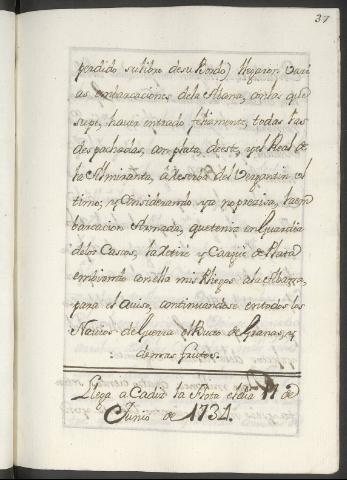 37
perdido su libro de su Bordo) llegaron vari
as embarcaciones de la Abana, con las que
supe, haver entrado felizmente, todas las
despachadas, con plata, de este, y el Real de
la Almiranta, a reserva del Vergantin ul
timo, y Considerando ya no precisa, la em
barcacion Armada, que tenia en Guardia
delos Cascos, la Retiré y Cargué de Plata
embiando con ella mis Pliegos a la Abana,
para el aviso, continuandose en todos los
Navios de Guerra el Buco de Granas, y
demas frutos.
Llega a Cadiz la Flota el dia 11 de
Junio de 1734.